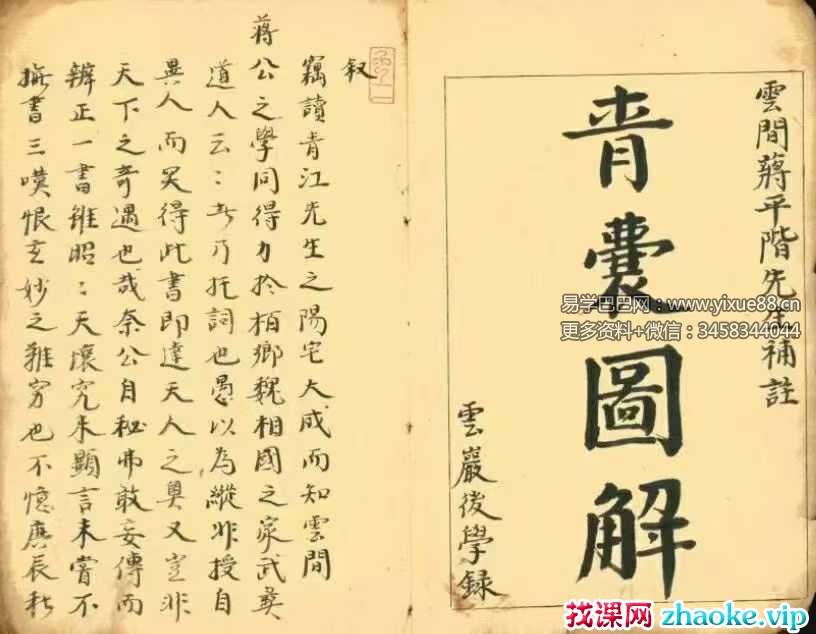 雲間蔣平階先生補註
青囊圖解
雲巖後學録
叙
竊讀青江先生之陽宅大成而知雲間
蔣公之學同得力於栢鄉魏相國之家武夷
道人云:者乃托詞也愚以為縱非授自
異人而哭得此書即達天人之奥又豈非
天下之奇遇也哉奈公自秘弗敢妄傳而
辨正一書雖昭:天壤究未顯言未嘗不
撫書三嘆恨玄妙之難窮也不憶庚辰秋
易学巴巴网:www.yixue88.cn
更多资料+微信:3458344044
找课网 zhaoke.vip